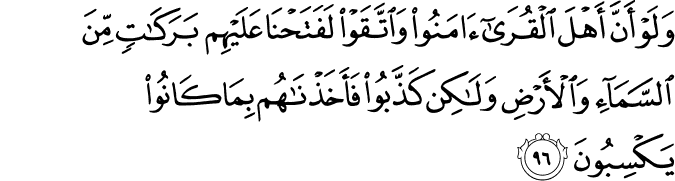 وَلَوْ أَنَّ أَهْلَ ٱلْقُرَىٰٓ ءَامَنُوا۟ وَٱتَّقَوْا۟ لَفَتَحْنَا عَلَيْهِم بَرَكَٰتٍ مِّنَ
ٱلسَّمَآءِ وَٱلْأَرْضِ وَلَٰكِن كَذَّبُوا۟ فَأَخَذْنَٰهُم بِمَا كَانُوا۟
يَكْسِبُونَ ٩٦